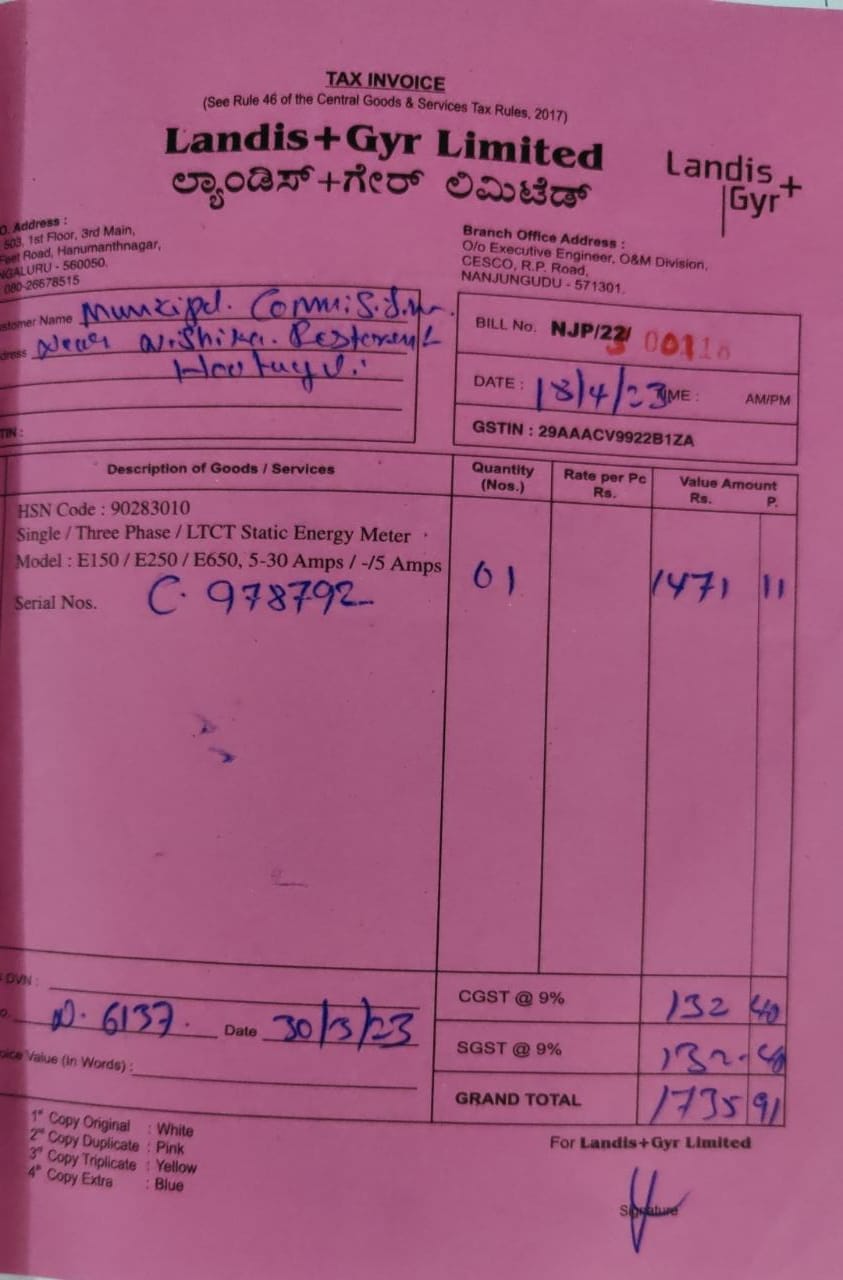 TAX INVOICE
(See Rule 46 of the Central Goods & Services Tax Rules, 2017)
Landis+Gyr Limited
ಲ್ಯಾಂಡಿಸ್+ಗೇರ್ ಲಿಮಿಟೆಡ್
Landis+
Gyr
O. Address :
503, 1st Floor, 3rd Main,
Feet Road, Hanumanthnagar,
NGALURU - 560050.
080-26678515
Branch Office Address :
O/o Executive Engineer, O&M Division,
CESCO, R.P. Road,
NANJUNGUDU - 571301.
ustomer Name
dress Near
TIN :
BILL No. NJP/22/ 00118
DATE : 18/4/23 TIME : AM/PM
GSTIN : 29AAACV9922B1ZA
Description of Goods / Services Quantity (Nos.) Rate per Pc Rs. Value Amount Rs. P.
HSN Code : 90283010
Single / Three Phase / LTCT Static Energy Meter
Model : E150 / E250 / E650, 5-30 Amps / -/5 Amps 01 1471 11
Serial Nos. C. 978792
DVN :
o. 6137. Date 30/3/23
oice Value (In Words) :
CGST @ 9% 132 40
SGST @ 9% 132 - 40
GRAND TOTAL 1735 91
1st Copy Original : White
2nd Copy Duplicate : Pink
3rd Copy Triplicate : Yellow
4th Copy Extra : Blue
For Landis+Gyr Limited
Signature